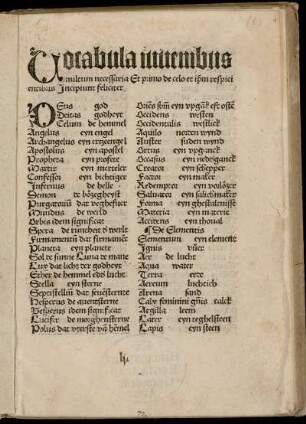 Vocabula iuuenibus
multum necessaria Et primo de celo et ipm respici
entibus Incipiunt feliciter
DEus god
Deitas godheyt
Celum de hemmel
Angelus eyn engel
Archangelus eyn ertzengel
Apostolus eyn apostel
Propheta eyn profete
Martir eyn merteler
Confessor eyn bichtiger
Infernus de helle
Demon te bözegheyst
Purgatoriū dat veghefuer
Mundus de werld
Orbis idem significat
Spera de rundheit d werlt
Firmamentū dat firmamēt
Planeta eyn planete
Sol de sunne Luna de mane
Lux dat lucht der godheyt
Ether de hemmel edd lucht
Stella eyn sterne
Septristellium dat seuēsternde
Hesperus de auentsterne
Vesperus idem significat
Lucifer de morghensterne
Polus dat vterste vā hēmel
Occidens westen
Occidentalis westlick
Aquilo norten wynd
Auster suden wynd
Ortus eyn vpganck
Occasus eyn nedderganck
Creator eyn schepper
Factor eyn maker
Redemptor eyn vorlözer
Saluator eyn salichmaker
Forma eyn ghestaltenisse
Materia eyn materie
Accidens eyn thoual
De Elementis
Elementum eyn elemente
Ignis vuer
Aer de lucht
Aqua water
Terra erde
Aereum luchtich
Arena sand
Calx feminini gñis calck
Argilla leem
Later eyn teghelsteen
Lapis eyn steen